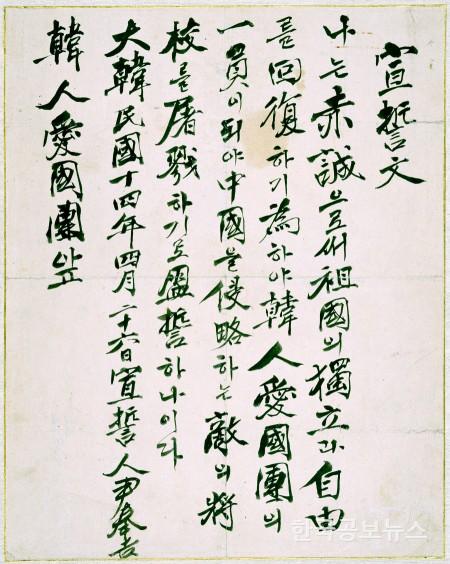 宣誓文
나는赤誠으로써祖國의獨立과自由
를回復하기爲하야韓人愛國團의
一員이되야中國을侵略하는敵의將
校를屠戮하기로盟誓하나이다
大韓民國十四年四月二十六日宣誓人尹奉吉
韓人愛國團앞
한국공보뉴스